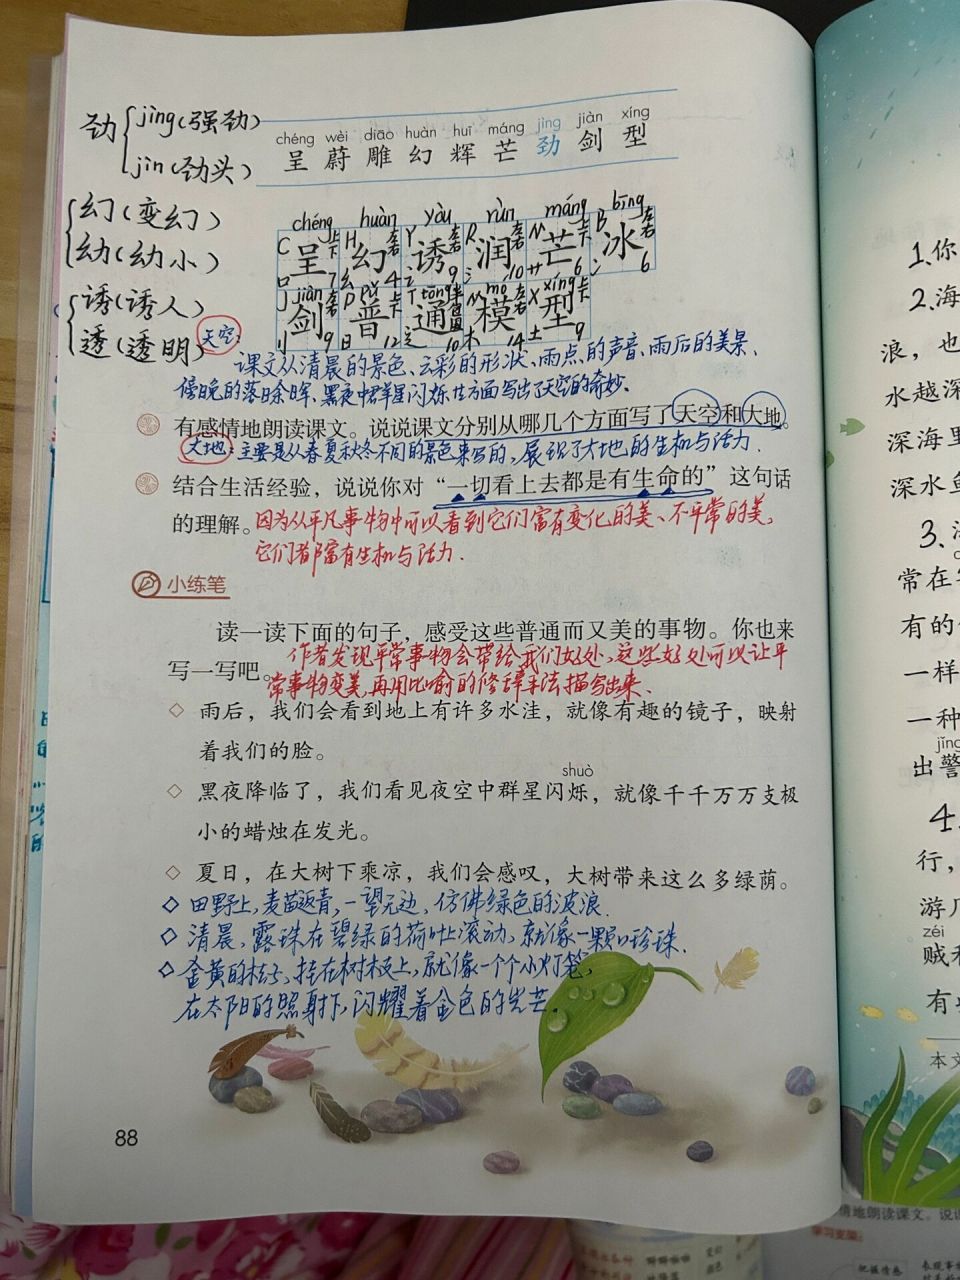 劲 jìng(强劲)
jìn(劲头)
幻(变幻)
幼(幼小)
诱(诱人)
透(透明)
chéng wèi diāo huàn huī máng jìng jiàn xíng
呈 蔚 雕 幻 辉 芒 劲 剑 型
chéng huàn yòu rùn máng bīng
呈 幻 诱 润 芒 冰
jiàn pǔ tōng mó xíng
剑 普 通 模 型
天空:课文从清晨的景色、云彩的形状、雨点的声音、雨后的美景、
傍晚的落日余晖、黑夜中群星闪烁等方面写出了天空的奇妙.
有感情地朗读课文。说说课文分别从哪几个方面写了天空和大地。
大地:主要是从春夏秋冬不同的景色来写的,展现了大地的生机与活力.
结合生活经验,说说你对“一切看上去都是有生命的”这句话
的理解。
因为从平凡事物中可以看到它们富有变化的美、不平常的美,
它们都富有生机与活力.
小练笔
读一读下面的句子,感受这些普通而又美的事物。你也来
写一写吧。
作者发现平常事物会带给我们好处,这些好处可以让平
常事物变美,再用比喻的修辞手法描写出来.
◇ 雨后,我们会看到地上有许多水洼,就像有趣的镜子,映射
着我们的脸。
shuò
◇ 黑夜降临了,我们看见夜空中群星闪烁,就像千千万万支极
小的蜡烛在发光。
◇ 夏日,在大树下乘凉,我们会感叹,大树带来这么多绿荫。
◇ 田野上,麦苗返青,一望无边,仿佛绿色的波浪.
◇ 清晨,露珠在碧绿的荷叶上滚动,就像一颗颗珍珠.
◇ 金黄的柿子,挂在树枝上,就像一个个小灯笼,
在太阳的照射下,闪耀着金色的光芒.
88
1.你
2.海
浪,也
水越深
深海里
深水鱼
3.
常在
有的
一样
一种
jǐng
出警
4.
行,
游几
zéi
贼
有
本文
情地朗读课文。说说
学习支架: